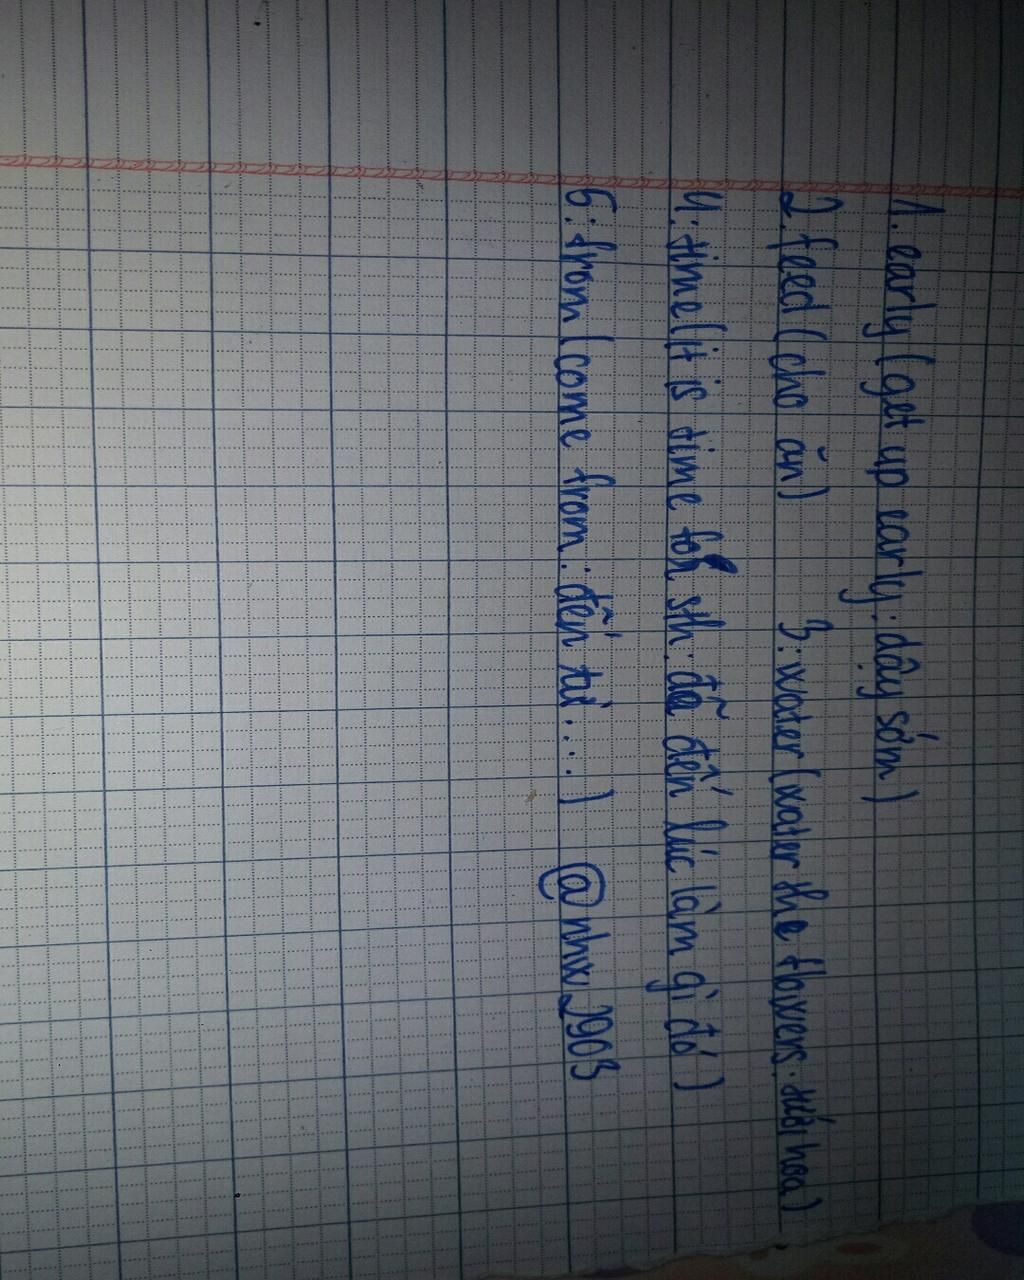 1. early (get up early : dậy sớm)
2. feed (cho ăn) 3 : water (water the flowers : tưới hoa)
4 : time (it is time for sth : đã đến lúc làm gì đó)
5 : from (come from : đến từ....) @nhx2903